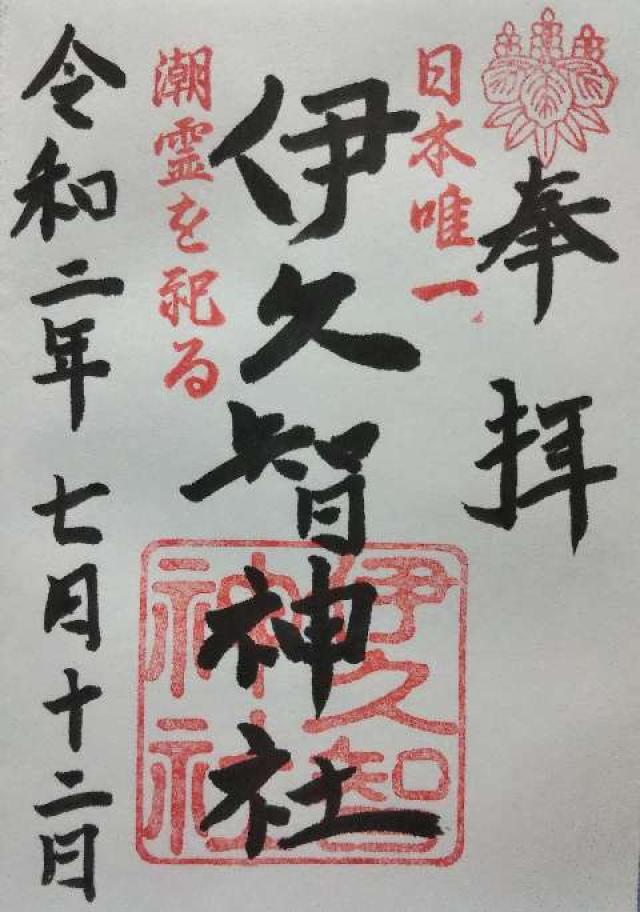 奉拝
日本唯一
伊久智神社
潮霊を祀る
令和二年七月十二日
伊久智
神社